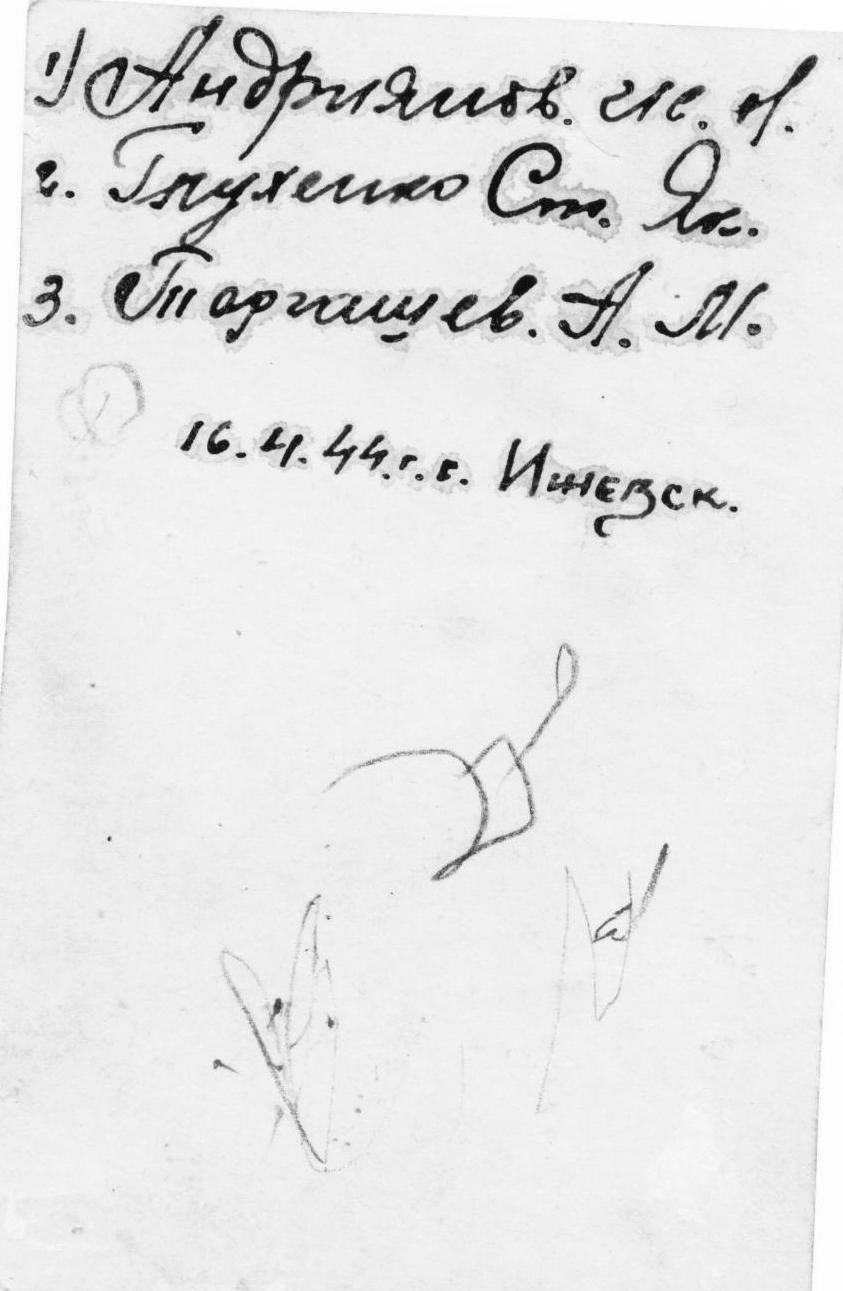 1) Андриянов. И. И.
2. Глухенко Ст. Як.
3. Торгашев. А. М.
16.4.44.г.г. Ижевск.